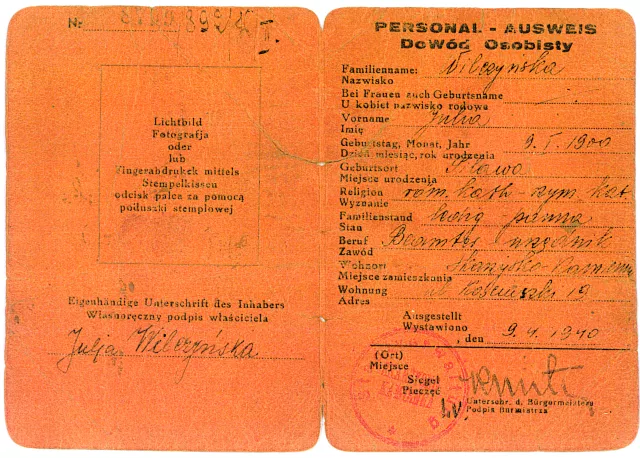 Nr
I.
Lichtbild
Fotografja
oder
lub
Fingerabdrukek mittels
Stempelkissen
odcisk palca za pomocą
poduszki stemplowej
Eigenhändige Unterschrift des Inhabers
Własnoręczny podpis właściciela
Julja Wilczyńska
PERSONAL - AUSWEIS
DoWód Osobisty
Familienname: Wilczyńska
Nazwisko
Bei Frauen auch Geburtsname
U kobiet nazwisko rodowe
Vorname Julia
Imię
Geburtstag, Monat, Jahr 9. I. 1900
Dzień miesiąc, rok urodzenia
Geburtsort
Miejsce urodzenia
Religion röm. kath - rzym. kat
Wyznanie
Familienstand ledig panna
Stan
Beruf Beamter urzędnik
Zawód
Wohnort Skarżysko Kamienna
Miejsce zamieszkania
Wohnung ul. Kościuszki 19
Adres
Ausgestellt
Wystawiono , den 9. 4. 1940
(Ort)
Miejsce
Siegel
Pieczęć
Unterschr. d. Bürgermeisters
Podpis Burmistrza